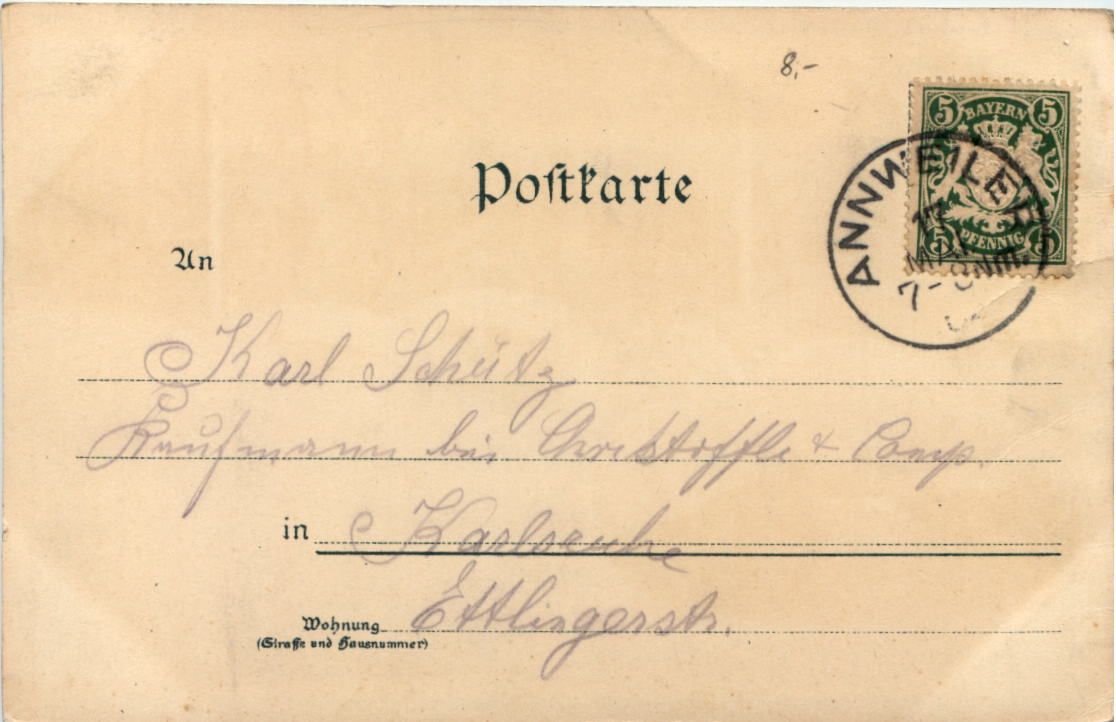 8,-
5 BAYERN 5
5 PFENNIG 5
ANNWEILER
17
7-8 Nm.
Poſtkarte
An
Karl Schütz
Kaufmann bei Christoffle & Comp.
in Karlsruhe
Wohnung Ettlingerstr.
(Straße und Hausnummer)